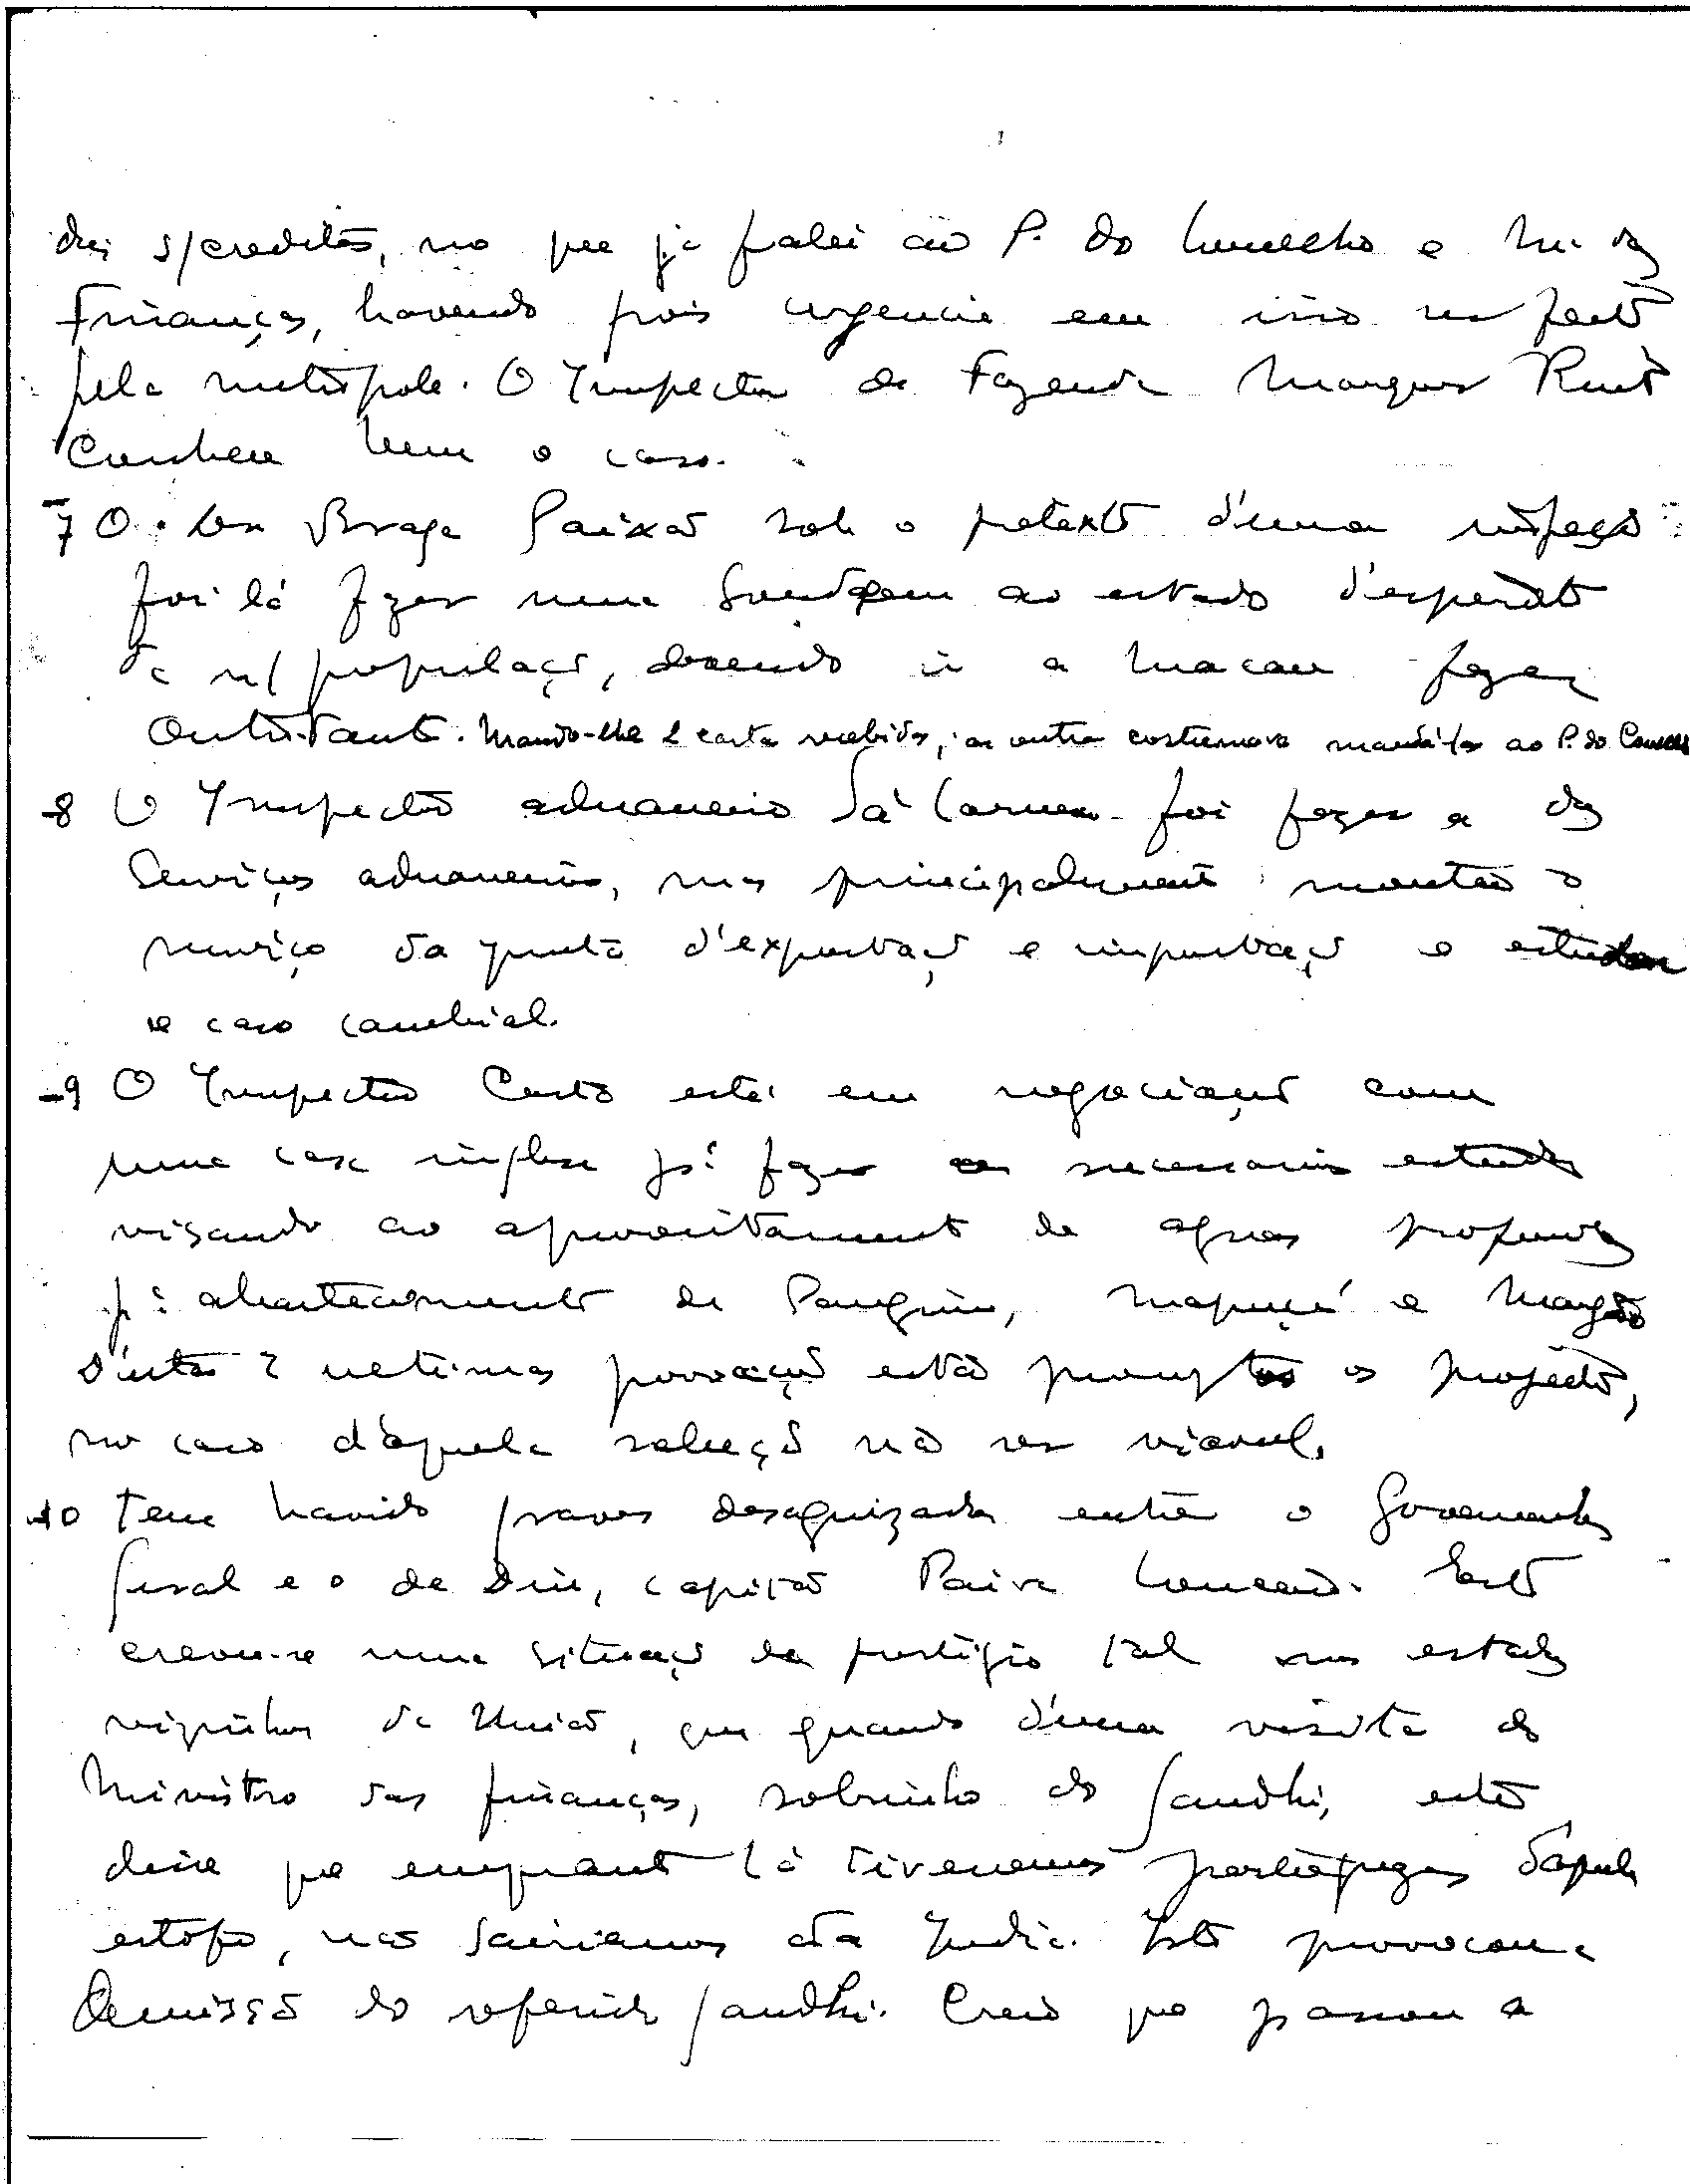 dos s/creditos, no que já falei ao P. do Conselho e M. das
Finanças, havendo pois urgencia em isso ser feito
pela metropole. O Inspector de Fazenda Marques
Conhece bem o caso.
-7 O Braga Paixão sob o pretexto d'uma inspeçã
foi lá fazer uma Sondagem ao estado d'espirito
da n/ populaçã, devendo ir a Macau fazer
Outro-tanto. Mando-lhe 2 cartas recebidas, as outras costumava mandá-las ao P. do Conselho
-8 O Inspector aduaneiro Sá Carneiro foi fazer a dos
Serviços aduaneiros, mas principalmente montar o
serviço da junta d'exportaçã e importaçã e estudar
o caso cambial.
-9 O Inspector Couto está em negociaçõs com
uma casa inglesa pª fazer os necessarios estudos
visando ao aproveitamento de aguas profundas
pª abastecimento de Pangim, Mapuçá e Margão
D'estas 2 ultimas povoaçõs estão promptos os projectos,
no caso d'aquela soluçã nã ser viavel.
-10 Tem havido graves desaguizados entre o Governador
geral e o de Diu, capitão Paiva Esto
creou-se uma situaçã de prestigio tal nos estados
visinhos da União, que quando d'uma visita do
Ministro das finanças, sobrinho do Gandhi, este
disse que enquanto lá tivessemos portuguezes d'aquele
estofo, não sairiamos da India. Isto provocou a
Demissã do referido Gandhi. Creio que passou a